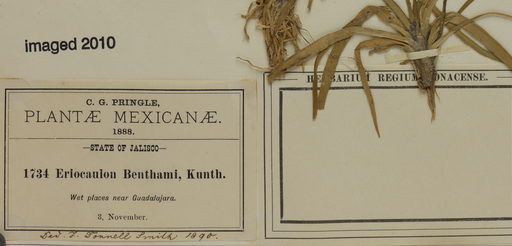 imaged 2010
HERBARIUM REGIUM MONACENSE.
C. G. PRINGLE,
PLANTÆ MEXICANÆ.
1888.
—STATE OF JALISCO—
1734 Eriocaulon Benthami, Kunth.
Wet places near Guadalajara.
3, November.
Ded. J. Donnell Smith 1890.